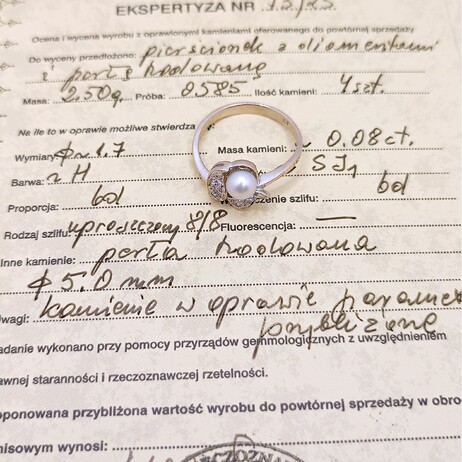 EKSPERTYZA NR
Ocena i wycena wyrobu z oprawionymi kamieniami oferowanego do powtórnej sprzedaży
Do wyceny przedłożono: pierścionek z diamentami
i perłą hodowaną
Masa: 2.50g. Próba: 0.585 Ilość kamieni: 4 szt.
Na ile to w oprawie możliwe stwierdza
Wymiary: ϕ ~ 1.7 Masa kamieni: ~ 0.08 ct.
Barwa: ~ H SJ1
Proporcja: bd czenie szlifu: bd
Rodzaj szlifu: uproszczony 8/8 Fluorescencja: —
Inne kamienie: perła hodowana
ϕ 5.0 mm
wagi: kamienie w oprawie parame
przybliżone
adanie wykonano przy pomocy przyrządów gemmologicznych z uwzględnieniem
awnej staranności i rzeczoznawczej rzetelności.
oponowana przybliżona wartość wyrobu do powtórnej sprzedaży w obro
misowym wynosi:
CZOZNA